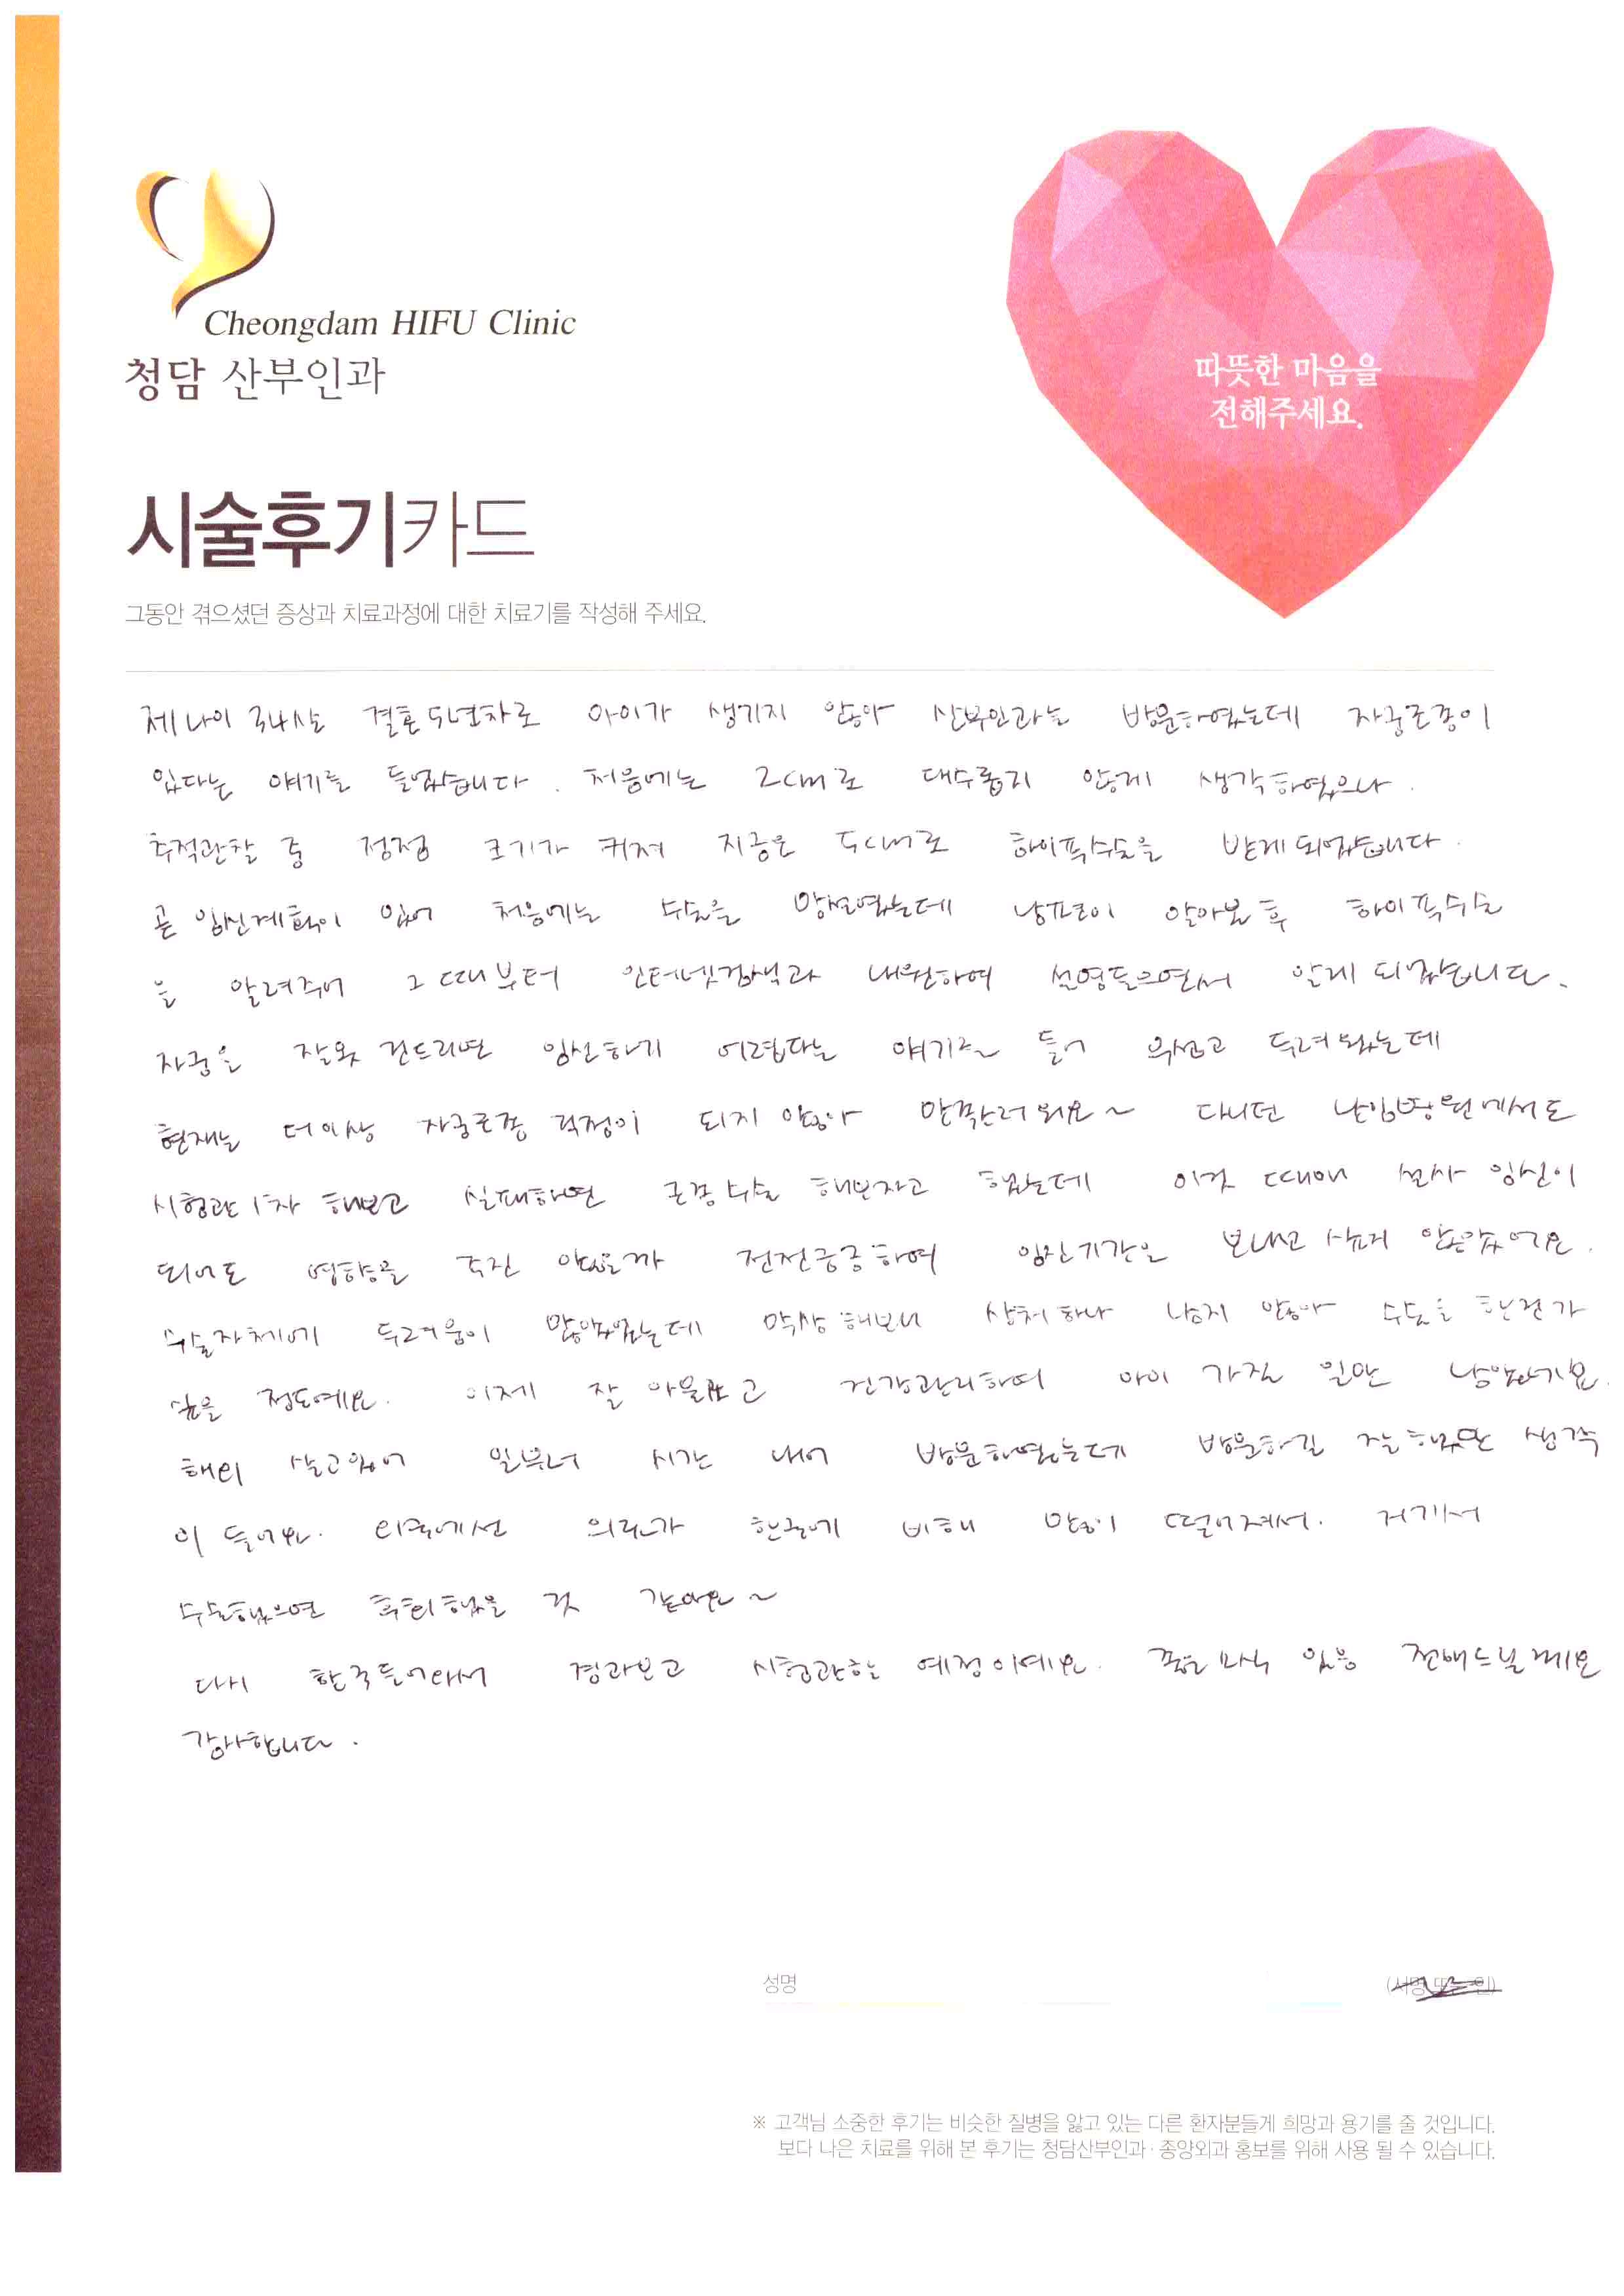 Cheongdam HIFU Clinic
청담 산부인과
따뜻한 마음을
전해주세요.
시술후기카드
그동안 겪으셨던 증상과 치료과정에 대한 치료기를 작성해 주세요.
제 나이 34살 결혼 5년차로 아이가 생기지 않아 산부인과는 방문하였는데 자궁근종이
있다는 얘기를 들었습니다. 처음에는 2cm로 대수롭지 않게 생각하였으나.
추적관찰 중 점점 크기가 커져 지금은 5cm로 하이푸수술을 받게 되었습니다.
곧 임신계획이 있어 처음에는 수술을 망설였는데 남편이 알아본 후 하이푸수술
을 알려주어 그 때부터 인터넷검색과 내원하여 설명들으면서 알게 되었습니다.
자궁을 잘못 건드리면 임신하기 어렵다는 얘기를 들어 우선 두려웠는데
현재는 더이상 자궁근종 걱정이 되지 않아 만족스러워요~ 다니던 난임병원에서도
시험관 1차 해보고 실패하면 근종수술 해보자고 했는데 이것 때매 설사 임신이
되어도 영향을 주진 않을까 전전긍긍하여 임신기간을 보내고 싶지 않았어요.
수술자체에 두려움이 많았었는데 막상 해보니 상처하나 남지 않아 수술을 한건가
싶을 정도예요. 이제 잘 아물고 건강관리하며 아이 가질 일만 남았네요.
해외 살고있어 일부러 시간 내어 방문하였는데 방문하길 잘했단 생각
이 들어요. 외국에선 의료가 한국에 비해 많이 떨어져서. 거기서
수술했으면 후회했을 것 같아요~
다시 한국들어와서 경과보고 시험관할 예정이예요. 좋은소식 있음 전해드릴께요
감사합니다.
성명
(서명 또는 인)
※ 고객님 소중한 후기는 비슷한 질병을 앓고 있는 다른 환자분들게 희망과 용기를 줄 것입니다.
보다 나은 치료를 위해 본 후기는 청담산부인과·종양외과 홍보를 위해 사용 될 수 있습니다.